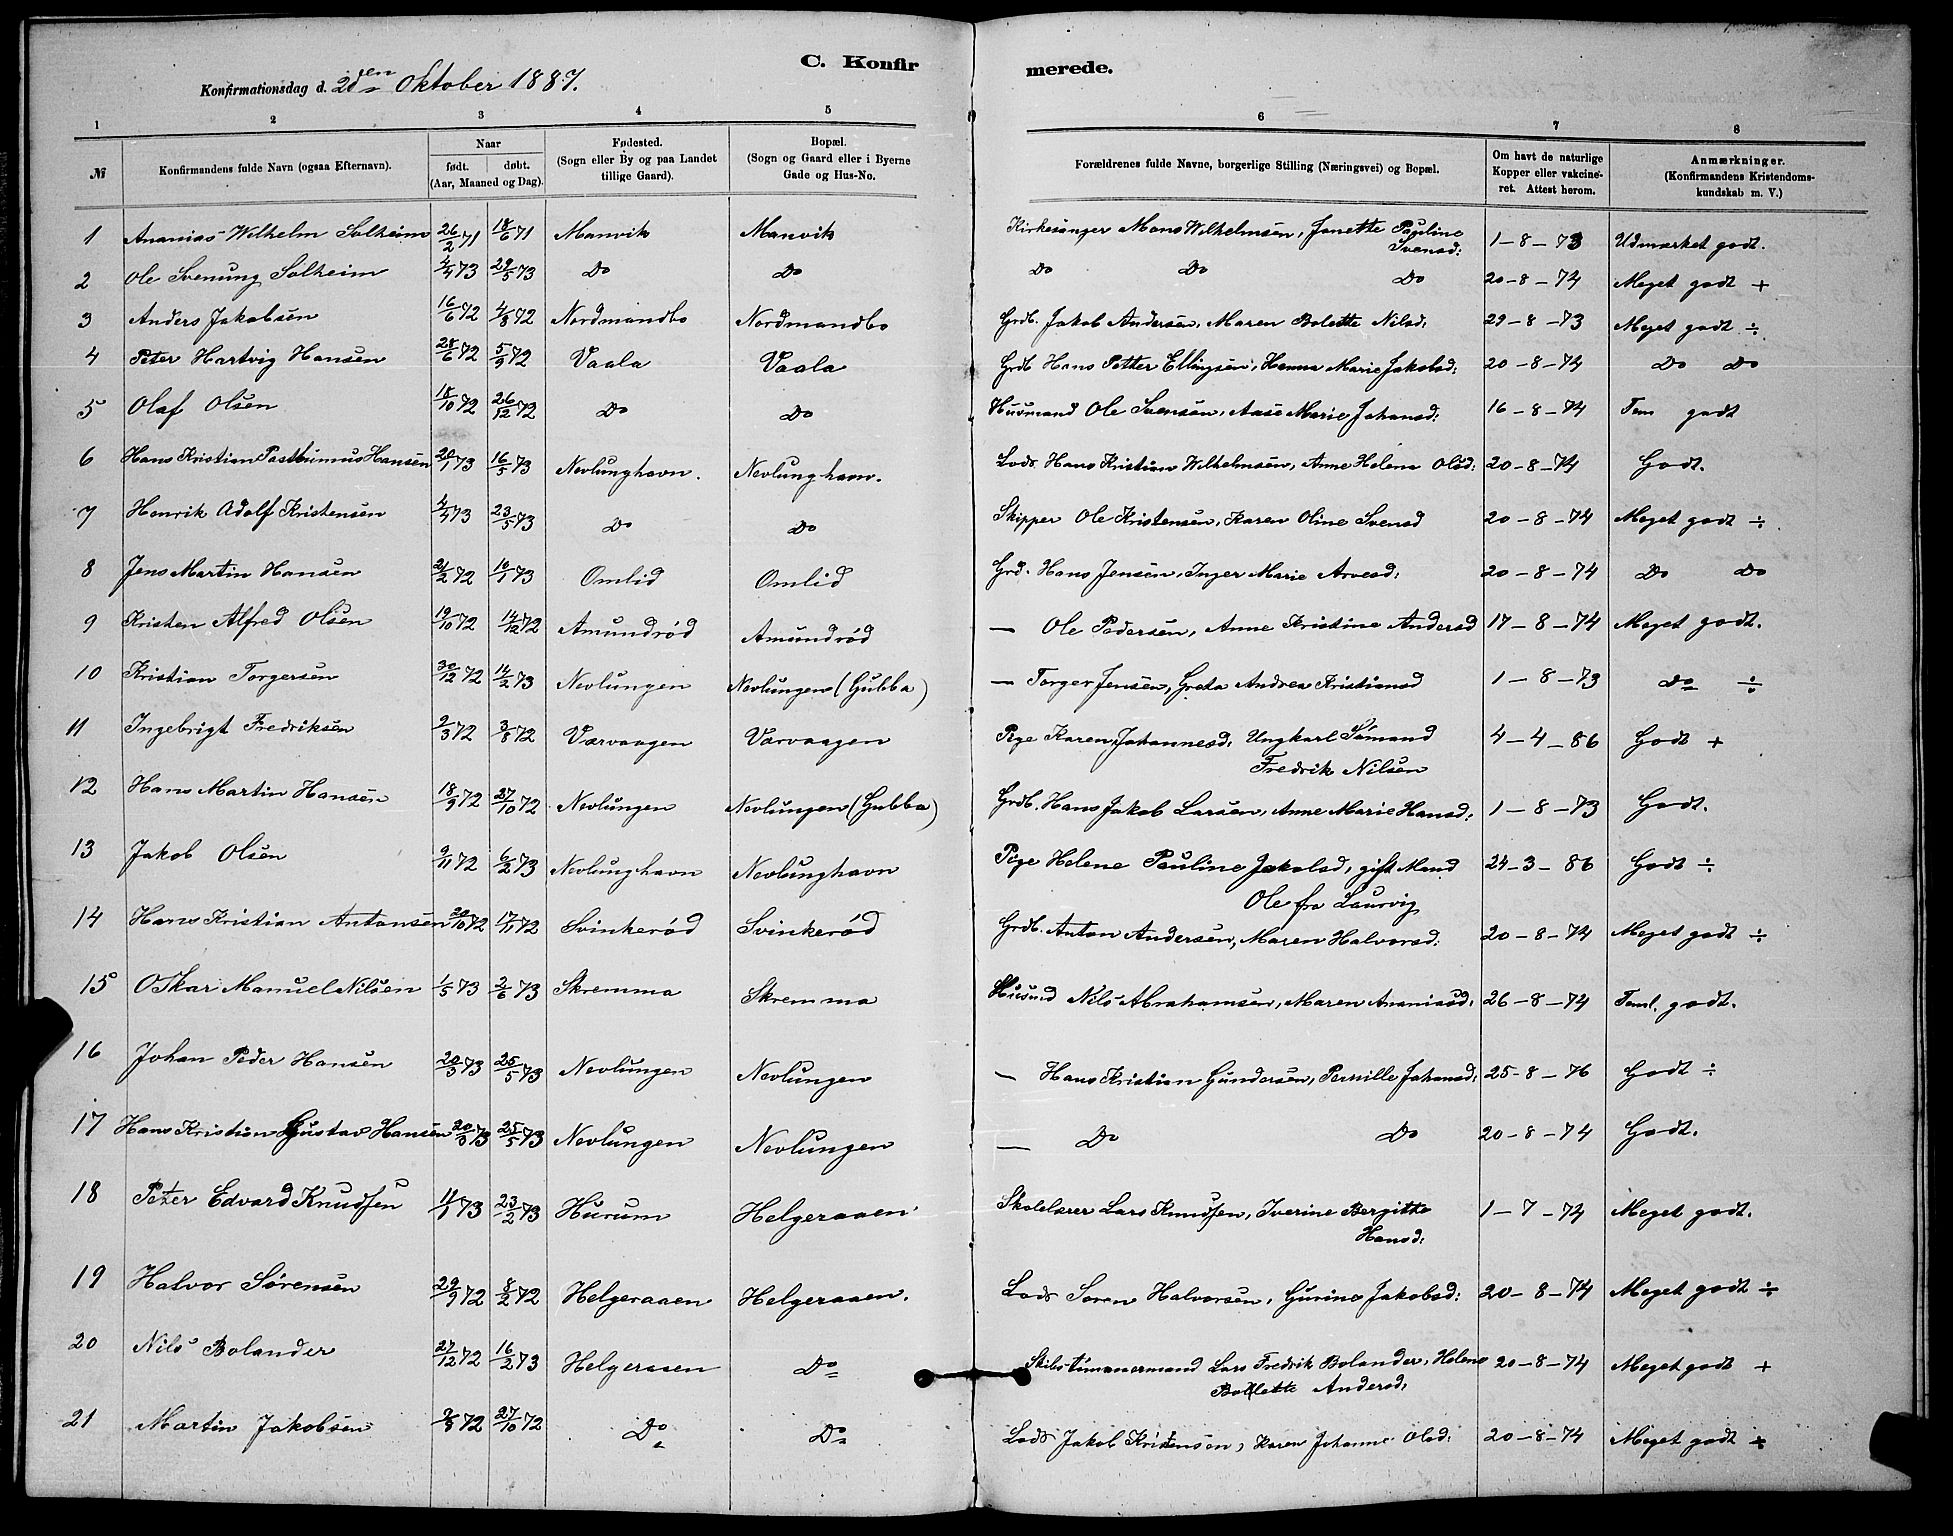 C. Konfirmerede.
Konfirmationsdag d. 2den Oktober 1887.
1 2 3 4 5 6 7 8
№ | Konfirmandens fulde Navn (ogsaa Efternavn). | Naar født. døbt. (Aar, Maaned og Dag). | Fødested. (Sogn eller By og paa Landet tillige Gaard). | Bopæl. (Sogn og Gaard eller i Byerne Gade og Hus-No. | Forældrenes fulde Navne, borgerlige Stilling (Næringsvei) og Bopæl. | Om havt de naturlige Kopper eller vakcineret. Attest herom. | Anmærkninger. (Konfirmandens Kristendomskundskab m. V.)
1 Ananias Wilhelm Solheim 26/2 71 18/6 71 Manvik Manvik Kirkesanger Mons Wilhelmsen, Janette Pauline Svensd: 1-8-73 Udmærket godt.
2 Ole Svenung Solheim 4/4 73 29/5 73 Do Do Do Do Do 20-8-74 Meget godt +
3 Anders Jakobsen 16/6 72 4/8 72 Nordmandbo Nordmandbo Grdb. Jakob Andersen, Maren Bolette Nilsd: 29-8-73 Meget godt ÷
4 Peter Hartvig Hansen 28/6 72 5/9 72 Vaala Vaala Grdb Hans Petter Ellingsen, Hanna Marie Jakobsd: 20-8-74 Do Do
5 Olaf Olsen 18/10 72 26/12 72 Do Do Husmand Ole Svensen, Aase Marie Johansd: 16-8-74 Tem godt
6 Hans Kristian Posthumus Hansen 20/1 73 16/5 73 Nevlunghavn. Nevlunghavn. Lods Hans Kristian Wilhelmsen, Anne Helene Olsd: 20-8-74 Godt.
7 Henrik Adolf Kristensen 4/4 73 23/5 73 Do Do Skipper Ole Kristensen, Karen Oline Svensd 20-8-74 Meget godt ÷
8 Jens Martin Hansen 21/2 72 10/1 73 Omlid Omlid Grd. Hans Jensen, Inger Marie Arvesd: 20-8-74 Do Do
9 Kristen Alfred Olsen 19/10 72 14/12 72 Amundrød Amundrød — Ole Pedersen, Anne Kristine Andersd 17-8-74 Meget godt.
10 Kristian Torgersen 30/12 72 14/2 73 Nevlungen Nevlungen (Gubba) — Torger Jensen, Greta Andrea Kristiansd 1-8-73 Do ÷
11 Ingebrigt Fredriksen 2/3 72 3/8 72 Værvaagen Værvaagen Pige Karen Johannesd: Ungkarl Sømand Fredrik Nilsen 4-4-86 Godt +
12 Hans Martin Hansen 18/9 72 27/10 72 Nevlungen Nevlungen (Gubba) Grdb. Hans Jakob Larsen, Anne Marie Hansd: 1-8-73 Godt.
13 Jakob Olsen 9/11 72 6/2 73 Nevlunghavn Nevlunghavn Pige Helene Pauline Jakobsd, gift Mand Ole fra Laurvig 24-3-86 Godt ÷
14 Hans Kristian Antonsen 20/10 72 17/11 72 Svinkerød Svinkerød Grdb. Anton Andersen, Maren Halvorsd: 20-8-74 Meget godt ÷
15 Oskar Manuel Nilsen 1/5 73 2/6 73 Skremma Skremma Husmd Nils Abrahamsen, Maren Ananiasd: 26-8-74 Teml. godt.
16 Johan Peder Hansen 20/3 73 25/5 73 Nevlungen Nevlungen — Hans Kristian Gundersen, Pernille Johansd: 25-8-76 Godt ÷
17 Hans Kristian Gustav Hansen 20/3 73 25/5 73 Nevlungen Nevlungen — Do Do 20-8-74 Godt.
18 Peter Edvard Knudsen 11/1 73 23/2 73 Hurum Helgeraaen. Skolelærer Lars Knudsen, Iverine Bergitte Hansd: 1-7-74 Meget godt.
19 Halvor Sørensen 29/9 72 8/2 72 Helgeraaen Helgeraaen. Lods Søren Halvorsen, Gurine Jakobsd: 20-8-74 Meget godt ÷
20 Nils Bolander 27/12 72 16/2 73 Helgeraaen Do Skibstømmermand Lars Fredrik Bolander, Helene Bollette Andersd, 20-8-74 Meget godt +
21 Martin Jakobsen 72 27/10 72 Do Do Lods Jakob Kristensen, Karen Johanne Olsd: 20-8-74 Meget godt ÷